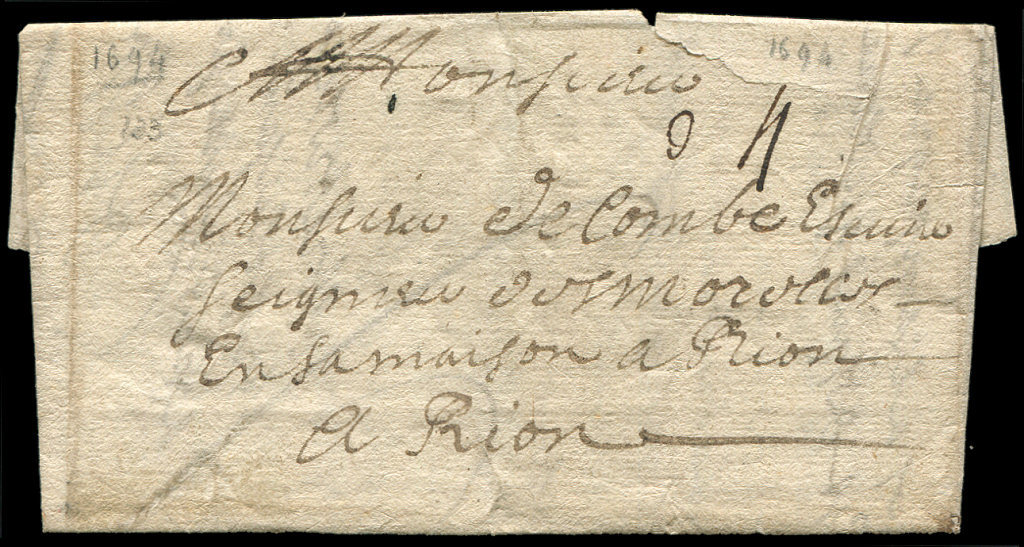 1694 1694
Monsieur
Monsieur de Combe Escuier
Seigneur des Morelles
En sa maison a Rion
A Rion